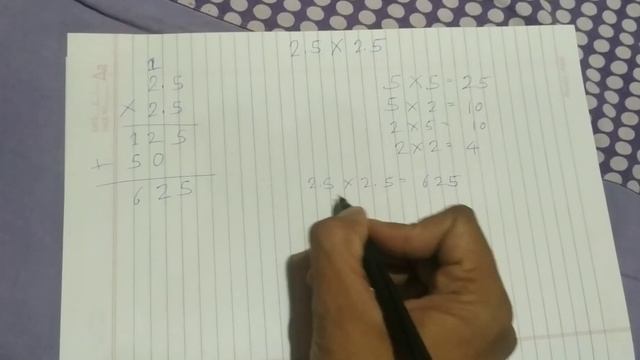 2.5 X 2.5
1
2.5
X 2.5
1 2 5
+ 5 0
6 2 5
5 X 5 = 25
5 X 2 = 10
2 X 5 = 10
2 X 2 = 4
2.5 X 2.5 = 625